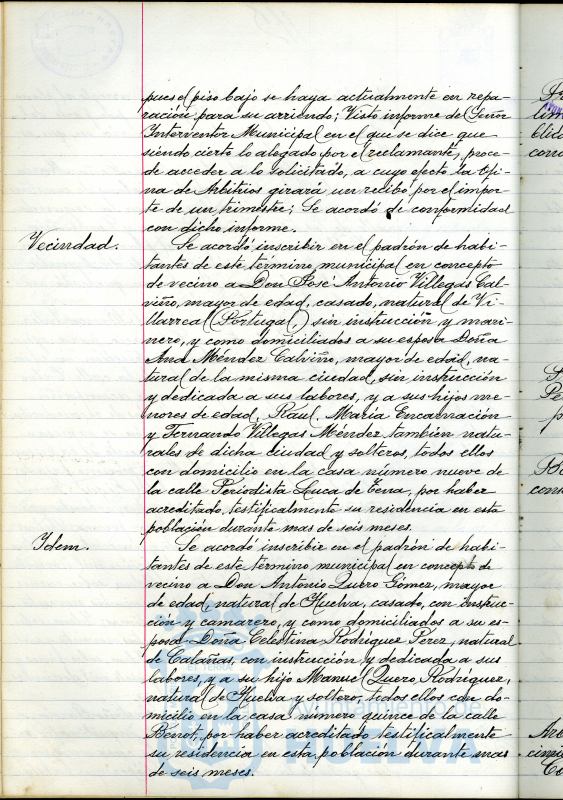 pues el piso bajo se haya actualmente en repa-
ración para su arriendo; Visto informe del Señor
Interventor Municipal en el que se dice que
siendo cierto lo alegado por el reclamante, proce-
de acceder a lo solicitado, a cuyo efecto la ofi-
na de Arbitrios girará un recibo por el impor-
te de un trimestre; Se acordó de conformidad
con dicho informe.
Vecindad.
Se acordó inscribir en el padrón de habi-
tantes de este término municipal en concepto
de vecino a Don José Antonio Villegas Cal-
viño, mayor de edad, casado, natural de Vi-
llarrea (Portugal,) sin instrucción y mari-
nero, y como domiciliados a su esposa Doña
Ana Méndez Calviño, mayor de edad, na-
tural de la misma ciudad, sin instrucción
y dedicada a sus labores, y a sus hijos me-
nores de edad, Raul, María Encarnación
y Fernando Villegas Méndez, también natu-
rales de dicha ciudad y solteros, todos ellos
con domicilio en la casa número nueve de
la calle Periodista Luca de Tena, por haber
acreditado testificalmente su residencia en esta
población durante mas de seis meses.
Idem.
Se acordó inscribir en el padrón de habi-
tantes de este término municipal en concepto de
vecino a Don Antonio Quero Gómez, mayor
de edad, natural de Huelva, casado, con instruc-
ción y camarero, y como domiciliados a su es-
posa Doña Celestina Rodríguez Pérez, natural
de Calañas, con instrucción y dedicada a sus
labores, y a su hijo Manuel Quero Rodríguez,
natural de Huelva y soltero, todos ellos con do-
micilio en la casa número quince de la calle
Benot, por haber acreditado testificalmente
su residencia en esta población durante mas
de seis meses.
Ayuntamiento de